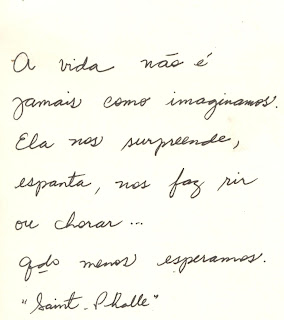 A vida não é
jamais como imaginamos.
Ela nos surpreende,
espanta, nos faz rir
ou chorar...
qdo menos esperamos.
"Saint - P Ralle"